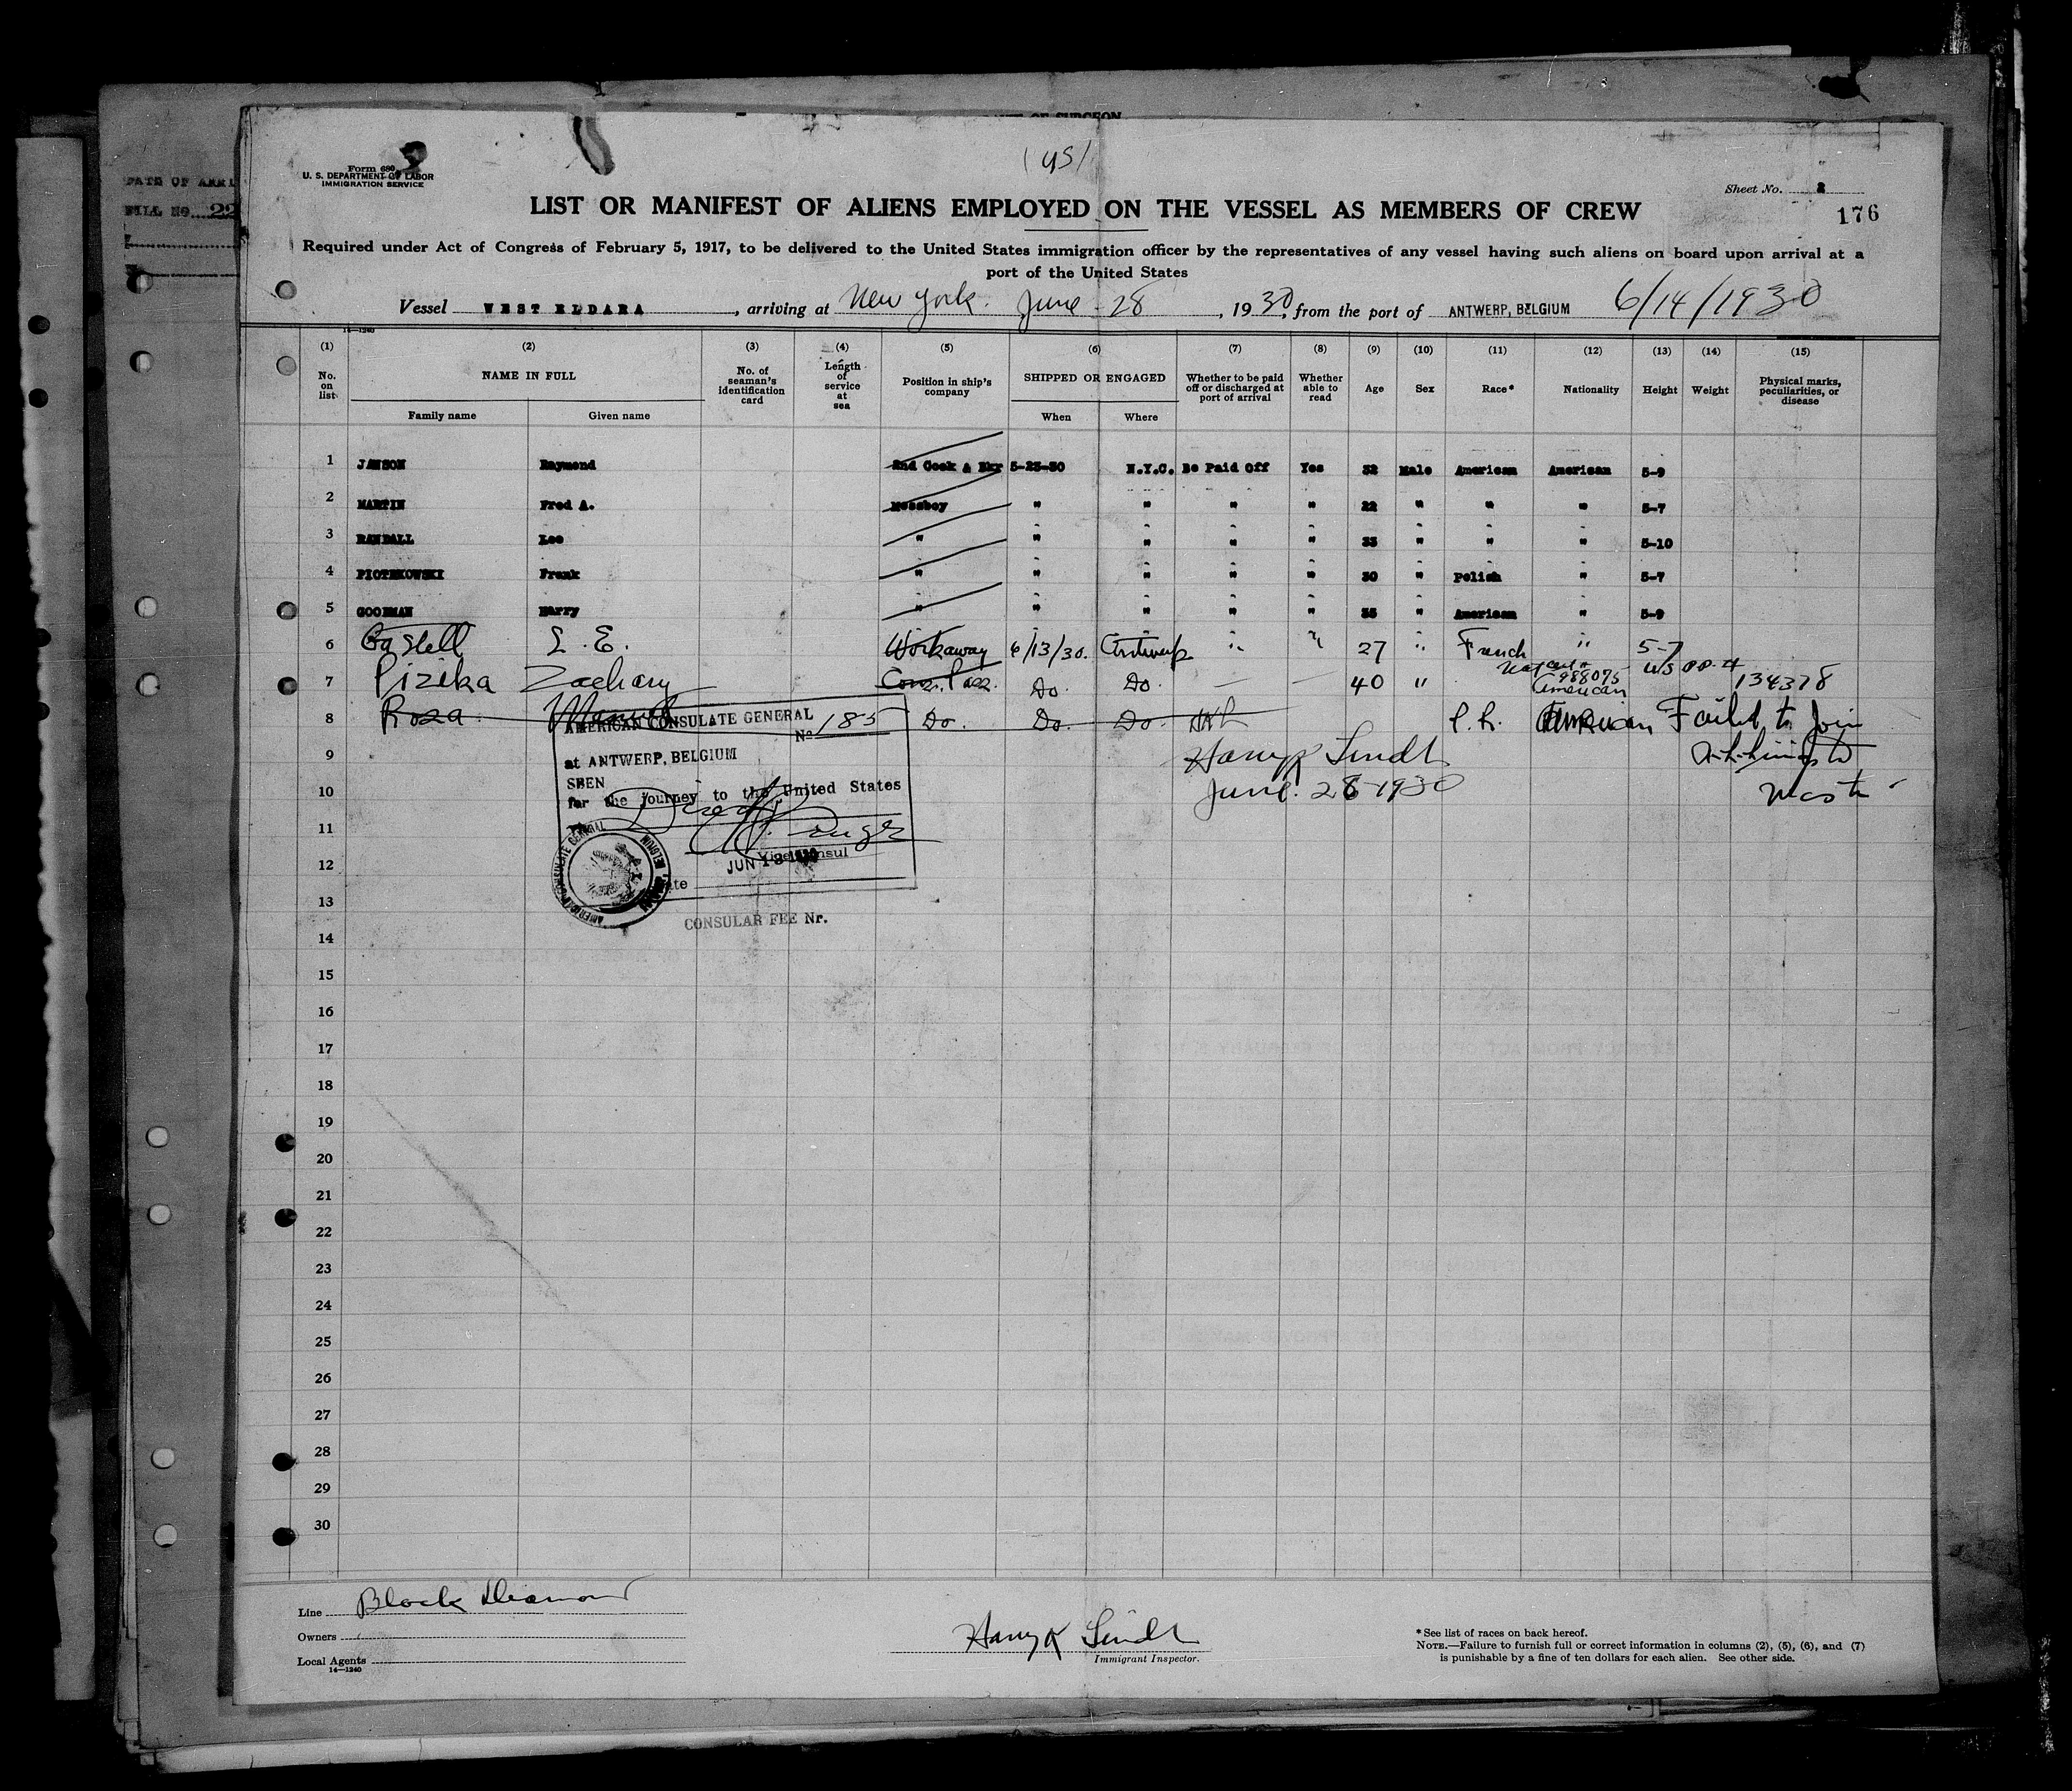 DATE OF
BILL NO. 22
Form 680
U. S. DEPARTMENT OF LABOR
IMMIGRATION SERVICE
(US)
Sheet No. 2
176
LIST OR MANIFEST OF ALIENS EMPLOYED ON THE VESSEL AS MEMBERS OF CREW
Required under Act of Congress of February 5, 1917, to be delivered to the United States immigration officer by the representatives of any vessel having such aliens on board upon arrival at a
port of the United States
Vessel WEST ELDARA, arriving at New York. June - 28, 1930, from the port of ANTWERP, BELGIUM 6/14/1930
14—1240
(1) (2) (3) (4) (5) (6) (7) (8) (9) (10) (11) (12) (13) (14) (15)
No. on list NAME IN FULL Family name Given name No. of seaman's identification card Length of service at sea Position in ship's company SHIPPED OR ENGAGED When Where Whether to be paid off or discharged at port of arrival Whether able to read Age Sex Race* Nationality Height Weight Physical marks, peculiarities, or disease
1 JANSON Raymond 2nd Cook & Bkr 5-23-30 N.Y.C. Be Paid Off Yes 32 Male American American 5-9
2 MARTIN Fred A. Messboy " " " " 22 " " " 5-7
3 RANDALL Lee " " " " " 33 " " " 5-10
4 PIOTRKOWSKI Frank " " " " " 30 " Polish " 5-7
5 GOODMAN Harry " " " " " 35 " American " 5-9
6 Gastell L. E. Workaway 6/13/30. Antwerp " " 27 " French " 5-7
7 Pizika Zachary Cons. Pass. Do. Do. — — 40 " 988075 American US 134378
8 Roza Do. Do. Do. American Failed to Join
9 Harry K Lindt
10 June. 28-1930 Master
11
12
13
14
15
16
17
18
19
20
21
22
23
24
25
26
27
28
29
30
AMERICAN CONSULATE GENERAL
No 185
at ANTWERP, BELGIUM
SEEN
for the journey to the United States
Direct
Vice Consul
JUN 13 1930
Date
AMERICAN CONSULATE GENERAL
CONSULAR FEE Nr.
Line Black Diamond
Owners
Local Agents
14—1240
Harry K Lindt
Immigrant Inspector.
* See list of races on back hereof.
NOTE.—Failure to furnish full or correct information in columns (2), (5), (6), and (7)
is punishable by a fine of ten dollars for each alien. See other side.